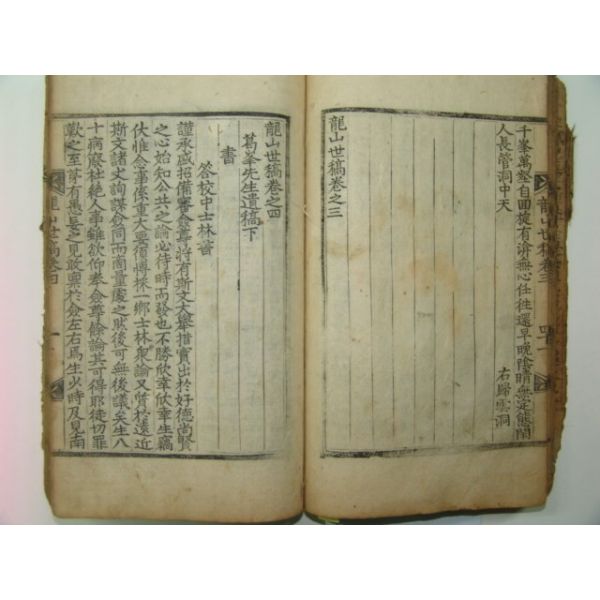 千峯萬壑自回旋有淪無心任往還早晚陰晴無定態閑
人長管洞中天
右歸雲洞
龍山世稿卷之三
龍山世稿卷三
龍山世稿卷之四
葛峯先生遺稿下
書
答校中士林書
謹承盛招備審僉尊將有斯文大舉措實出於好德尚賢
之心始知公共之論必待時而發也不勝欣幸欣幸生竊
伏惟念事係重大要須博採一鄉士林衆論又質於遠近
斯文諸丈詢謀僉同而商量處之然後可無後議矣生八
十病廢杜絶人事雖欲仰奉僉尊餘論其可得耶徒切罪
歎之至第有愚妄之見敢輿於僉左右焉生少時及見南
龍山世稿卷四
一